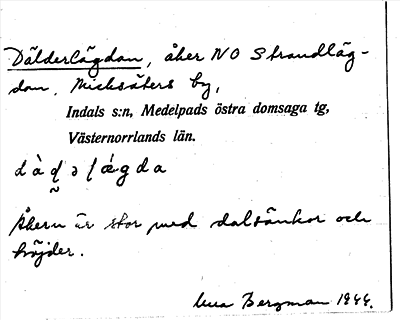 Dälderlägdan, åker NO Strandläg-
dan, Nicksäters by,
Indals s:n, Medelpads östra domsaga tg,
Västernorrlands län.
Åkern är stor med dalsänkor och
höjder.
Bergman 1944.